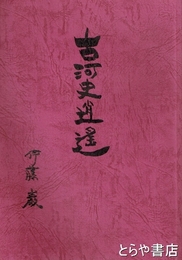 古河史逍遥
伊藤巖
とらや書店